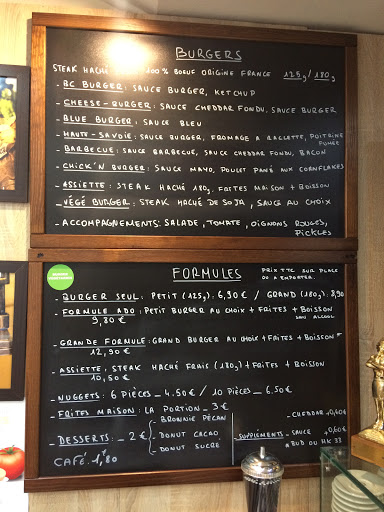 BURGERS
STEAK HACHÉ 100% BOEUF ORIGINE FRANCE 125g/180g
- BC BURGER: SAUCE BURGER, KETCHUP
- CHEESE-BURGER: SAUCE CHEDDAR FONDU, SAUCE BURGER
- BLUE BURGER: SAUCE BLEU
- HAUTE-SAVOIE: SAUCE BURGER, FROMAGE A RACLETTE, POITRINE
FUMÉE
- BARBECUE: SAUCE BARBECUE, SAUCE CHEDDAR FONDU, BACON
- CHICK'N BURGER: SAUCE MAYO, POULET PANÉ AUX CORNFLAKES
- ASSIETTE: STEAK HACHÉ 180g, FRITES MAISON + BOISSON
- VÉGÉ BURGER: STEAK HACHÉ DE SOJA, SAUCE AU CHOIX
- ACCOMPAGNEMENTS: SALADE, TOMATE, OIGNONS ROUGES,
PICKLES
FORMULES
PRIX TTC SUR PLACE
OU A EMPORTER.
- BURGER SEUL: PETIT (125g): 6,90€ / GRAND (180g): 8,90
- FORMULE ADO: PETIT BURGER AU CHOIX + FRITES + BOISSON
9,80€ SAN ALCOOL
- GRANDE FORMULE: GRAND BURGER AU CHOIX + FRITES + BOISSON
12,90€
- ASSIETTE, STEAK HACHÉ FRAIS (180g) + FRITES + BOISSON
10,50€
- NUGGETS: 6 PIÈCES _ 4.50€ / 10 PIÈCES _ 6.50€
- FRITES MAISON: LA PORTION _ 3€
- DESSERTS: _ 2€
- BROWNIE PÉCAN
- DONUT CACAO
- DONUT SUCRÉ
SUPPLÉMENTS
- CHEDDAR +0,60€
- SAUCE +0,60€
BUD OU HK 33
CAFÉ: 1,80